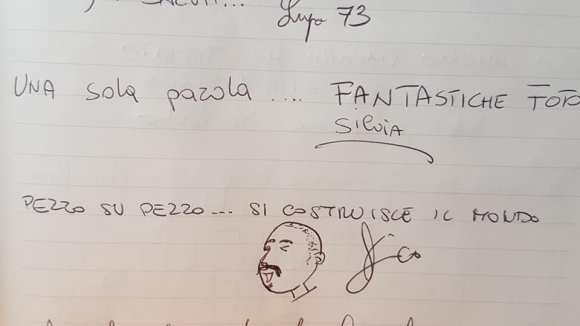 Lupo 73
UNA sola parola .... FANTASTICHE FOTO
Silvia
PEZZO SU PEZZO... SI COSTRUISCE IL MONDO